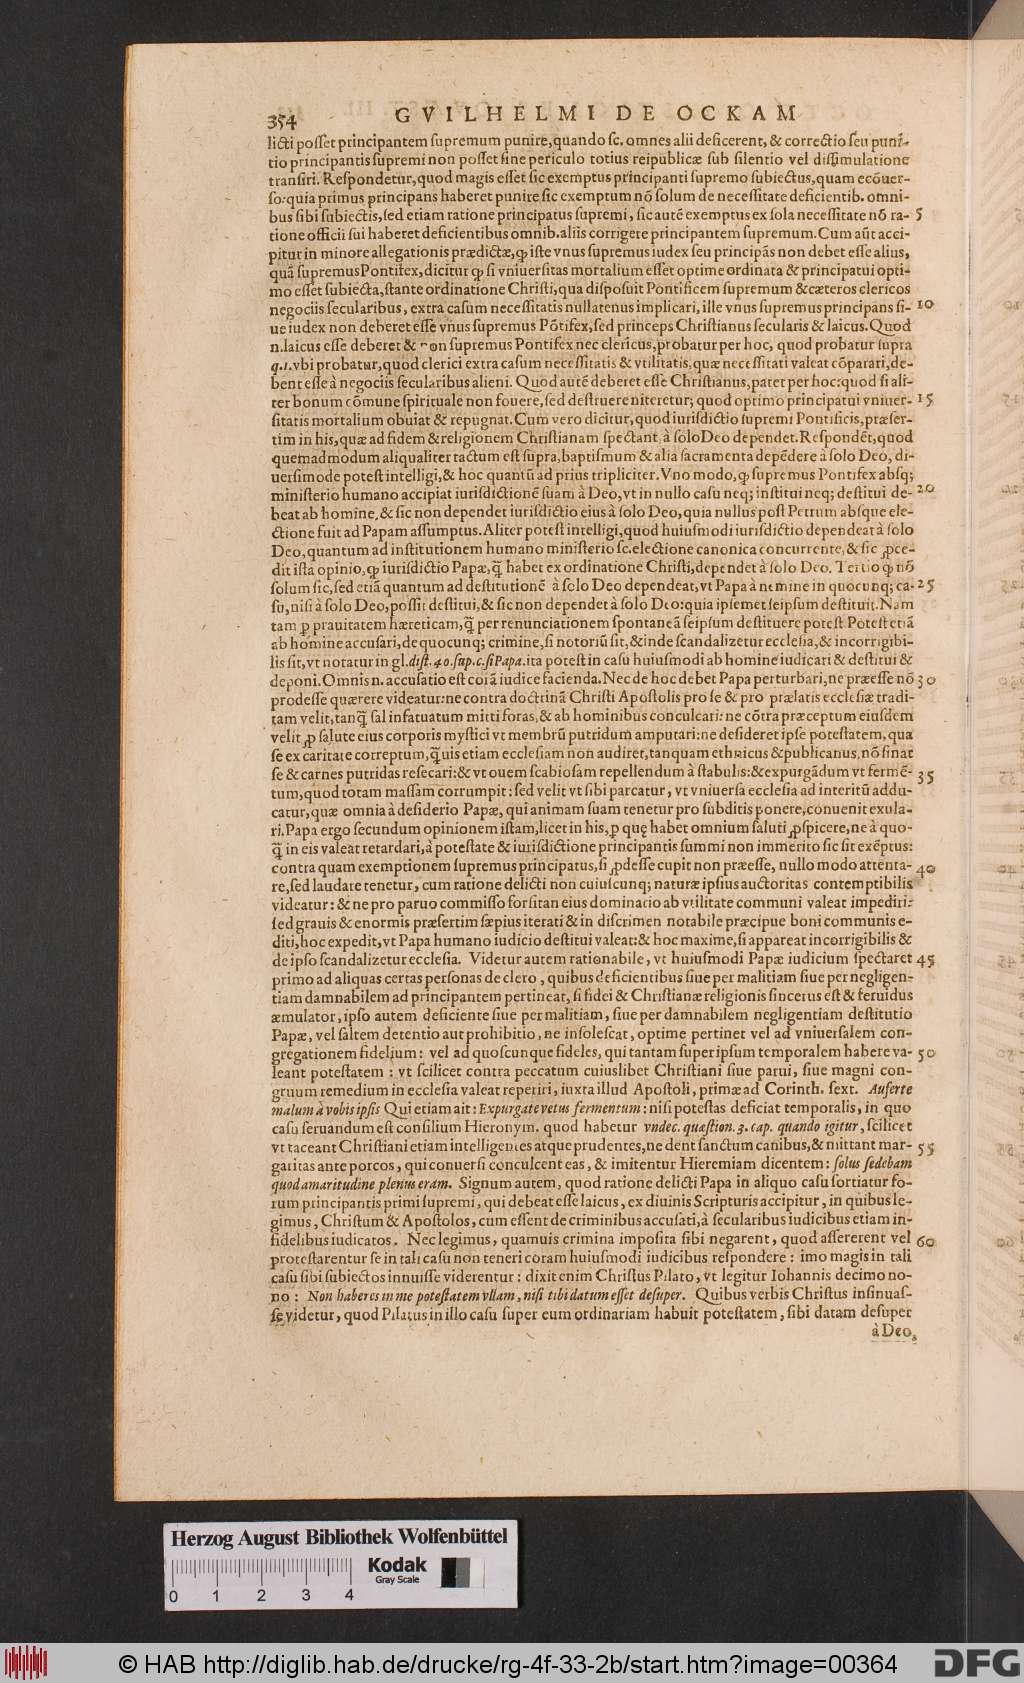 354
GVILHELMI DE OCKAM
licti posset principantem supremum punire, quando sc. omnes alii deficerent, & correctio seu puni-
tio principantis supremi non posset sine periculo totius reipublicæ sub silentio vel dissimulatione
transiri. Respondetur, quod magis esset sic exemptus principanti supremo subiectus, quam ecōuer-
so: quia primus principans haberet punire sic exemptum nō solum de necessitate deficientib. omni-
bus sibi subiectis, sed etiam ratione principatus supremi, sic autē exemptus ex sola necessitate nō ra- 5
tione officii sui haberet deficientibus omnib. aliis corrigere principantem supremum. Cum aūt acci-
pitur in minore allegationis prædictæ, ꝙ iste vnus supremus iudex seu principās non debet esse alius,
quā supremus Pontifex, dicitur ꝙ si vniuersitas mortalium esset optime ordinata & principatui opti-
mo esset subiecta, stante ordinatione Christi, qua disposuit Pontificem supremum & cæteros clericos
negociis secularibus, extra casum necessitatis nullatenus implicari, ille vnus supremus principans si- 10
ue iudex non deberet esse vnus supremus Pōtifex, sed princeps Christianus secularis & laicus. Quod
n. laicus esse deberet & non supremus Pontifex nec clericus, probatur per hoc, quod probatur supra
q. 1. vbi probatur, quod clerici extra casum necessitatis & vtilitatis, quæ necessitati valeat cōparari, de-
bent esse à negociis secularibus alieni. Quod autē deberet esse Christianus, patet per hoc: quod si ali-
ter bonum cōmune spirituale non fouere, sed destruere niteretur; quod optimo principatui vniuer- 15
sitatis mortalium obuiat & repugnat. Cum vero dicitur, quod iurisdictio supremi Pontificis, præser-
tim in his, quæ ad fidem & religionem Christianam spectant, à solo Deo dependet. Respondēt, quod
quemadmodum aliqualiter tactum est supra, baptismum & alia sacramenta depēdere à solo Deo, di-
uersimode potest intelligi, & hoc quantū ad prius tripliciter. Vno modo, ꝙ supremus Pontifex absq;
ministerio humano accipiat iurisdictionē suam à Deo, vt in nullo casu neq; institui neq; destitui de- 20
beat ab homine, & sic non dependet iurisdictio eius à solo Deo, quia nullus post Petrum absque ele-
ctione fuit ad Papam assumptus. Aliter potest intelligi, quod huiusmodi iurisdictio dependeat à solo
Deo, quantum ad institutionem humano ministerio sc. electione canonica concurrente, & sic ꝓce-
dit ista opinio, ꝙ iurisdictio Papæ, q̄ habet ex ordinatione Christi, dependet à solo Deo. Tertio ꝙ nō
solum sic, sed etiā quantum ad destitutionē à solo Deo dependeat, vt Papa à nemine in quocunq; ca- 25
su, nisi à solo Deo, possit destitui, & sic non dependet à solo Deo: quia ipsemet seipsum destituit. Nam
tam ꝑ prauitatem hæreticam, q̄ per renunciationem spontaneā seipsum destituere potest Potest etiā
ab homine accusari, de quocunq; crimine, si notoriū sit, & inde scandalizetur ecclesia, & incorrigibi-
lis sit, vt notatur in gl. dist. 40. sup. c. si Papa. ita potest in casu huiusmodi ab homine iudicari & destitui &
deponi. Omnis n. accusatio est corā iudice facienda. Nec de hoc debet Papa perturbari, ne præesse nō 30
prodesse quærere videatur: ne contra doctrinā Christi Apostolis pro se & pro prælatis ecclesiæ tradi-
tam velit, tanq̄ sal infatuatum mitti foras, & ab hominibus conculcari: ne cōtra præceptum eiusdem
velit ꝓ salute eius corporis mystici vt membrū putridum amputari: ne desideret ipse potestatem, qua
se ex caritate correptum, q̄uis etiam ecclesiam non audiret, tanquam ethnicus & publicanus, nō sinat
se & carnes putridas resecari: & vt ouem scabiosam repellendum à stabulis: & expurgādum vt fermē- 35
tum, quod totam massam corrumpit: sed velit vt sibi parcatur, vt vniuersa ecclesia ad interitū addu-
catur, quæ omnia à desiderio Papæ, qui animam suam tenetur pro subditis ponere, conuenit exula-
ri. Papa ergo secundum opinionem istam, licet in his, ꝑ quę habet omnium saluti ꝓspicere, ne à quo-
q̄ in eis valeat retardari, à potestate & iurisdictione principantis summi non immerito sic sit exēptus:
contra quam exemptionem supremus principatus, si ꝓdesse cupit non præesse, nullo modo attenta- 40
re, sed laudare tenetur, cum ratione delicti non cuiuscunq; naturæ ipsius auctoritas contemptibilis
videatur: & ne pro paruo commisso forsitan eius dominatio ab vtilitate communi valeat impediri:
sed grauis & enormis præsertim sæpius iterati & in discrimen notabile præcipue boni communis e-
diti, hoc expedit, vt Papa humano iudicio destitui valeat: & hoc maxime, si appareat incorrigibilis &
de ipso scandalizetur ecclesia. Videtur autem rationabile, vt huiusmodi Papæ iudicium spectaret 45
primo ad aliquas certas personas de clero, quibus deficientibus siue per malitiam siue per negligen-
tiam damnabilem ad principantem pertineat, si fidei & Christianæ religionis sincerus est & feruidus
æmulator, ipso autem deficiente siue per malitiam, siue per damnabilem negligentiam destitutio
Papæ, vel saltem detentio aut prohibitio, ne insolescat, optime pertinet vel ad vniuersalem con-
gregationem fidelium: vel ad quoscunque fideles, qui tantam super ipsum temporalem habere va- 50
leant potestatem: vt scilicet contra peccatum cuiuslibet Christiani siue parui, siue magni con-
gruum remedium in ecclesia valeat reperiri, iuxta illud Apostoli, primæ ad Corinth. sext. Auferte
malum à vobis ipsis Qui etiam ait: Expurgate vetus fermentum: nisi potestas deficiat temporalis, in quo
casu seruandum est consilium Hieronym. quod habetur vndec. quæstion. 3. cap. quando igitur, scilicet
vt taceant Christiani etiam intelligentes atque prudentes, ne dent sanctum canibus, & mittant mar- 55
garitas ante porcos, qui conuersi conculcent eas, & imitentur Hieremiam dicentem: solus sedebam
quod amaritudine plenus eram. Signum autem, quod ratione delicti Papa in aliquo casu sortiatur fo-
rum principantis primi supremi, qui debeat esse laicus, ex diuinis Scripturis accipitur, in quibus le-
gimus, Christum & Apostolos, cum essent de criminibus accusati, à secularibus iudicibus etiam in-
fidelibus iudicatos. Nec legimus, quamuis crimina imposita sibi negarent, quod assererent vel 60
protestarentur se in tali casu non teneri coram huiusmodi iudicibus respondere: imo magis in tali
casu sibi subiectos innuisse viderentur: dixit enim Christus Pilato, vt legitur Iohannis decimo no-
no: Non haberes in me potestatem vllam, nisi tibi datum esset desuper. Quibus verbis Christus insinuas-
se videtur, quod Pilatus in illo casu super eum ordinariam habuit potestatem, sibi datam desuper
à Deo,
Herzog August Bibliothek Wolfenbüttel
Kodak
Gray Scale
0 1 2 3 4
© HAB http://diglib.hab.de/drucke/rg-4f-33-2b/start.htm?image=00364
DFG